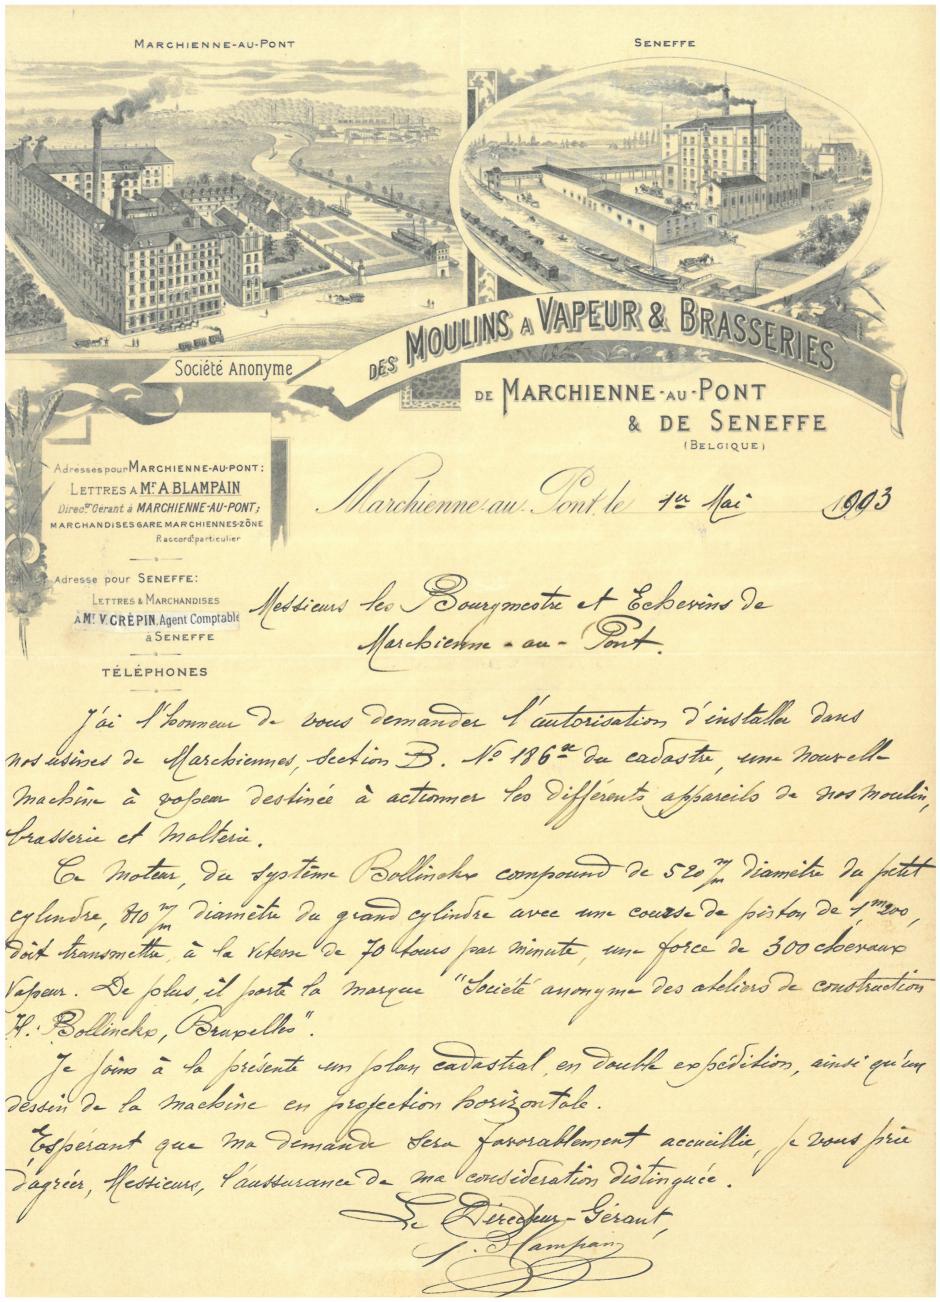 MARCHIENNE-AU-PONT
SENEFFE
Société Anonyme
DES MOULINS A VAPEUR & BRASSERIES
DE MARCHIENNE-AU-PONT
& DE SENEFFE
(BELGIQUE)
Adresses pour MARCHIENNE-AU-PONT:
LETTRES A Mr. A. BLAMPAIN
Direcr. Gérant à MARCHIENNE-AU-PONT;
MARCHANDISES GARE MARCHIENNES-ZÔNE
Raccordt. particulier
Adresse pour SENEFFE:
LETTRES & MARCHANDISES
À Mr. V. CRÉPIN, Agent Comptable
à SENEFFE
TÉLÉPHONES
Marchienne au Pont, le 1er Mai 1903
Messieurs les Bourgmestre et Echevins de
Marchienne-au-Pont.
J'ai l'honneur de vous demander l'autorisation d'installer dans
nos usines de Marchiennes, section B. No 186 du cadastre, une nouvelle
machine à vapeur destinée à actionner les différents appareils de nos moulin,
brasserie et malterie.
Ce moteur, du système Bollinckx compound de 520 m/m diamètre du petit
cylindre, 810 m/m diamètre du grand cylindre avec une course de piston de 1m200,
doit transmettre, à la vitesse de 70 tours par minute, une force de 300 chevaux
vapeur. De plus, il porte la marque "Société anonyme des ateliers de construction
H. Bollinckx, Bruxelles".
Je joins à la présente un plan cadastral, en double expédition, ainsi qu'un
dessin de la machine en projection horizontale.
Espérant que ma demande sera favorablement accueillie, je vous prie
d'agréer, Messieurs, l'assurance de ma considération distinguée.
Le Directeur-Gérant,
Blampain